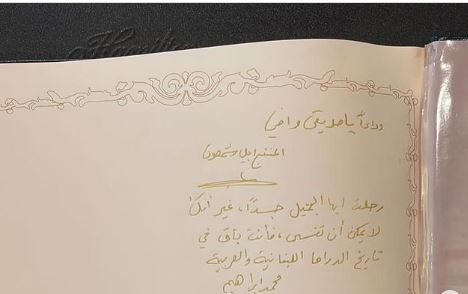 وداعاً يا صديقي وأخي
المنتج إيلي شمعون
رحلت أيها الجميل جسداً، غير أنك
لا يمكن أن تنسى، فأنت باق في
تاريخ الدراما اللبنانية والعربية
محمد إبراهيم